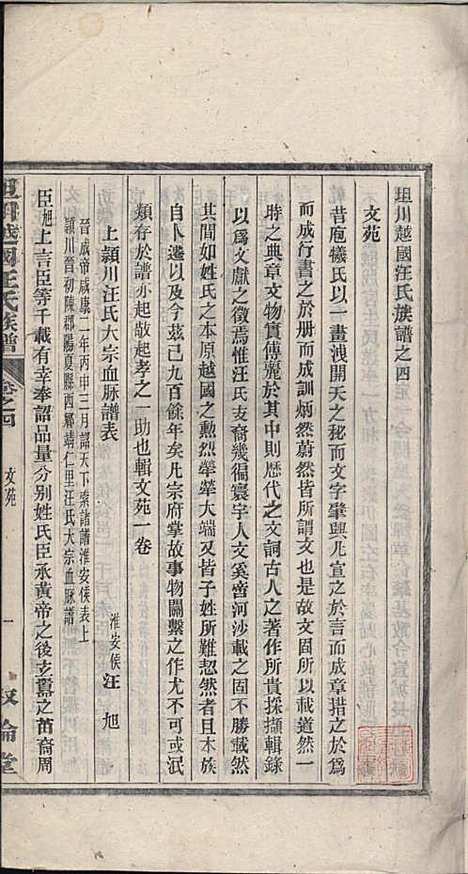 坦川越國汪氏族譜之四
文苑
昔庖犧氏以一畫洩開天之秘而文字肇興凡宣之於言而成章措之於為
而成行書之於册而成訓炳然蔚然皆所謂文也是故文固所以載道然一
時之典章文物實傳麗於其中則歷代之文詞古人之所貴採擷輯錄
以為文獻之徵焉惟汪氏支裔幾徧寰宇人文奚啻河沙載之固不勝載然
其間如姓氏之本原越國之勲烈犖犖大端又皆子姓所難恝然者且本族
自卜遷以及今茲已九百餘年矣凡宗府掌故事物關繫之作尤不可或泯
類存於譜亦起敬起孝之一助也輯文苑一卷
上潁川汪氏大宗血脉譜表
淮安侯汪旭
晉成帝咸康二年丙申三月詔天下索諸譜淮安侯表上
潁川晉初陳郡陽夏縣西鄉靖仁里汪氏大宗血脉譜
臣旭上言臣等千載有幸奉詔品量分別姓氏臣承黃帝之後支纂之苗裔周
坦川越國汪氏族譜
卷之四
文苑
一
叙倫堂